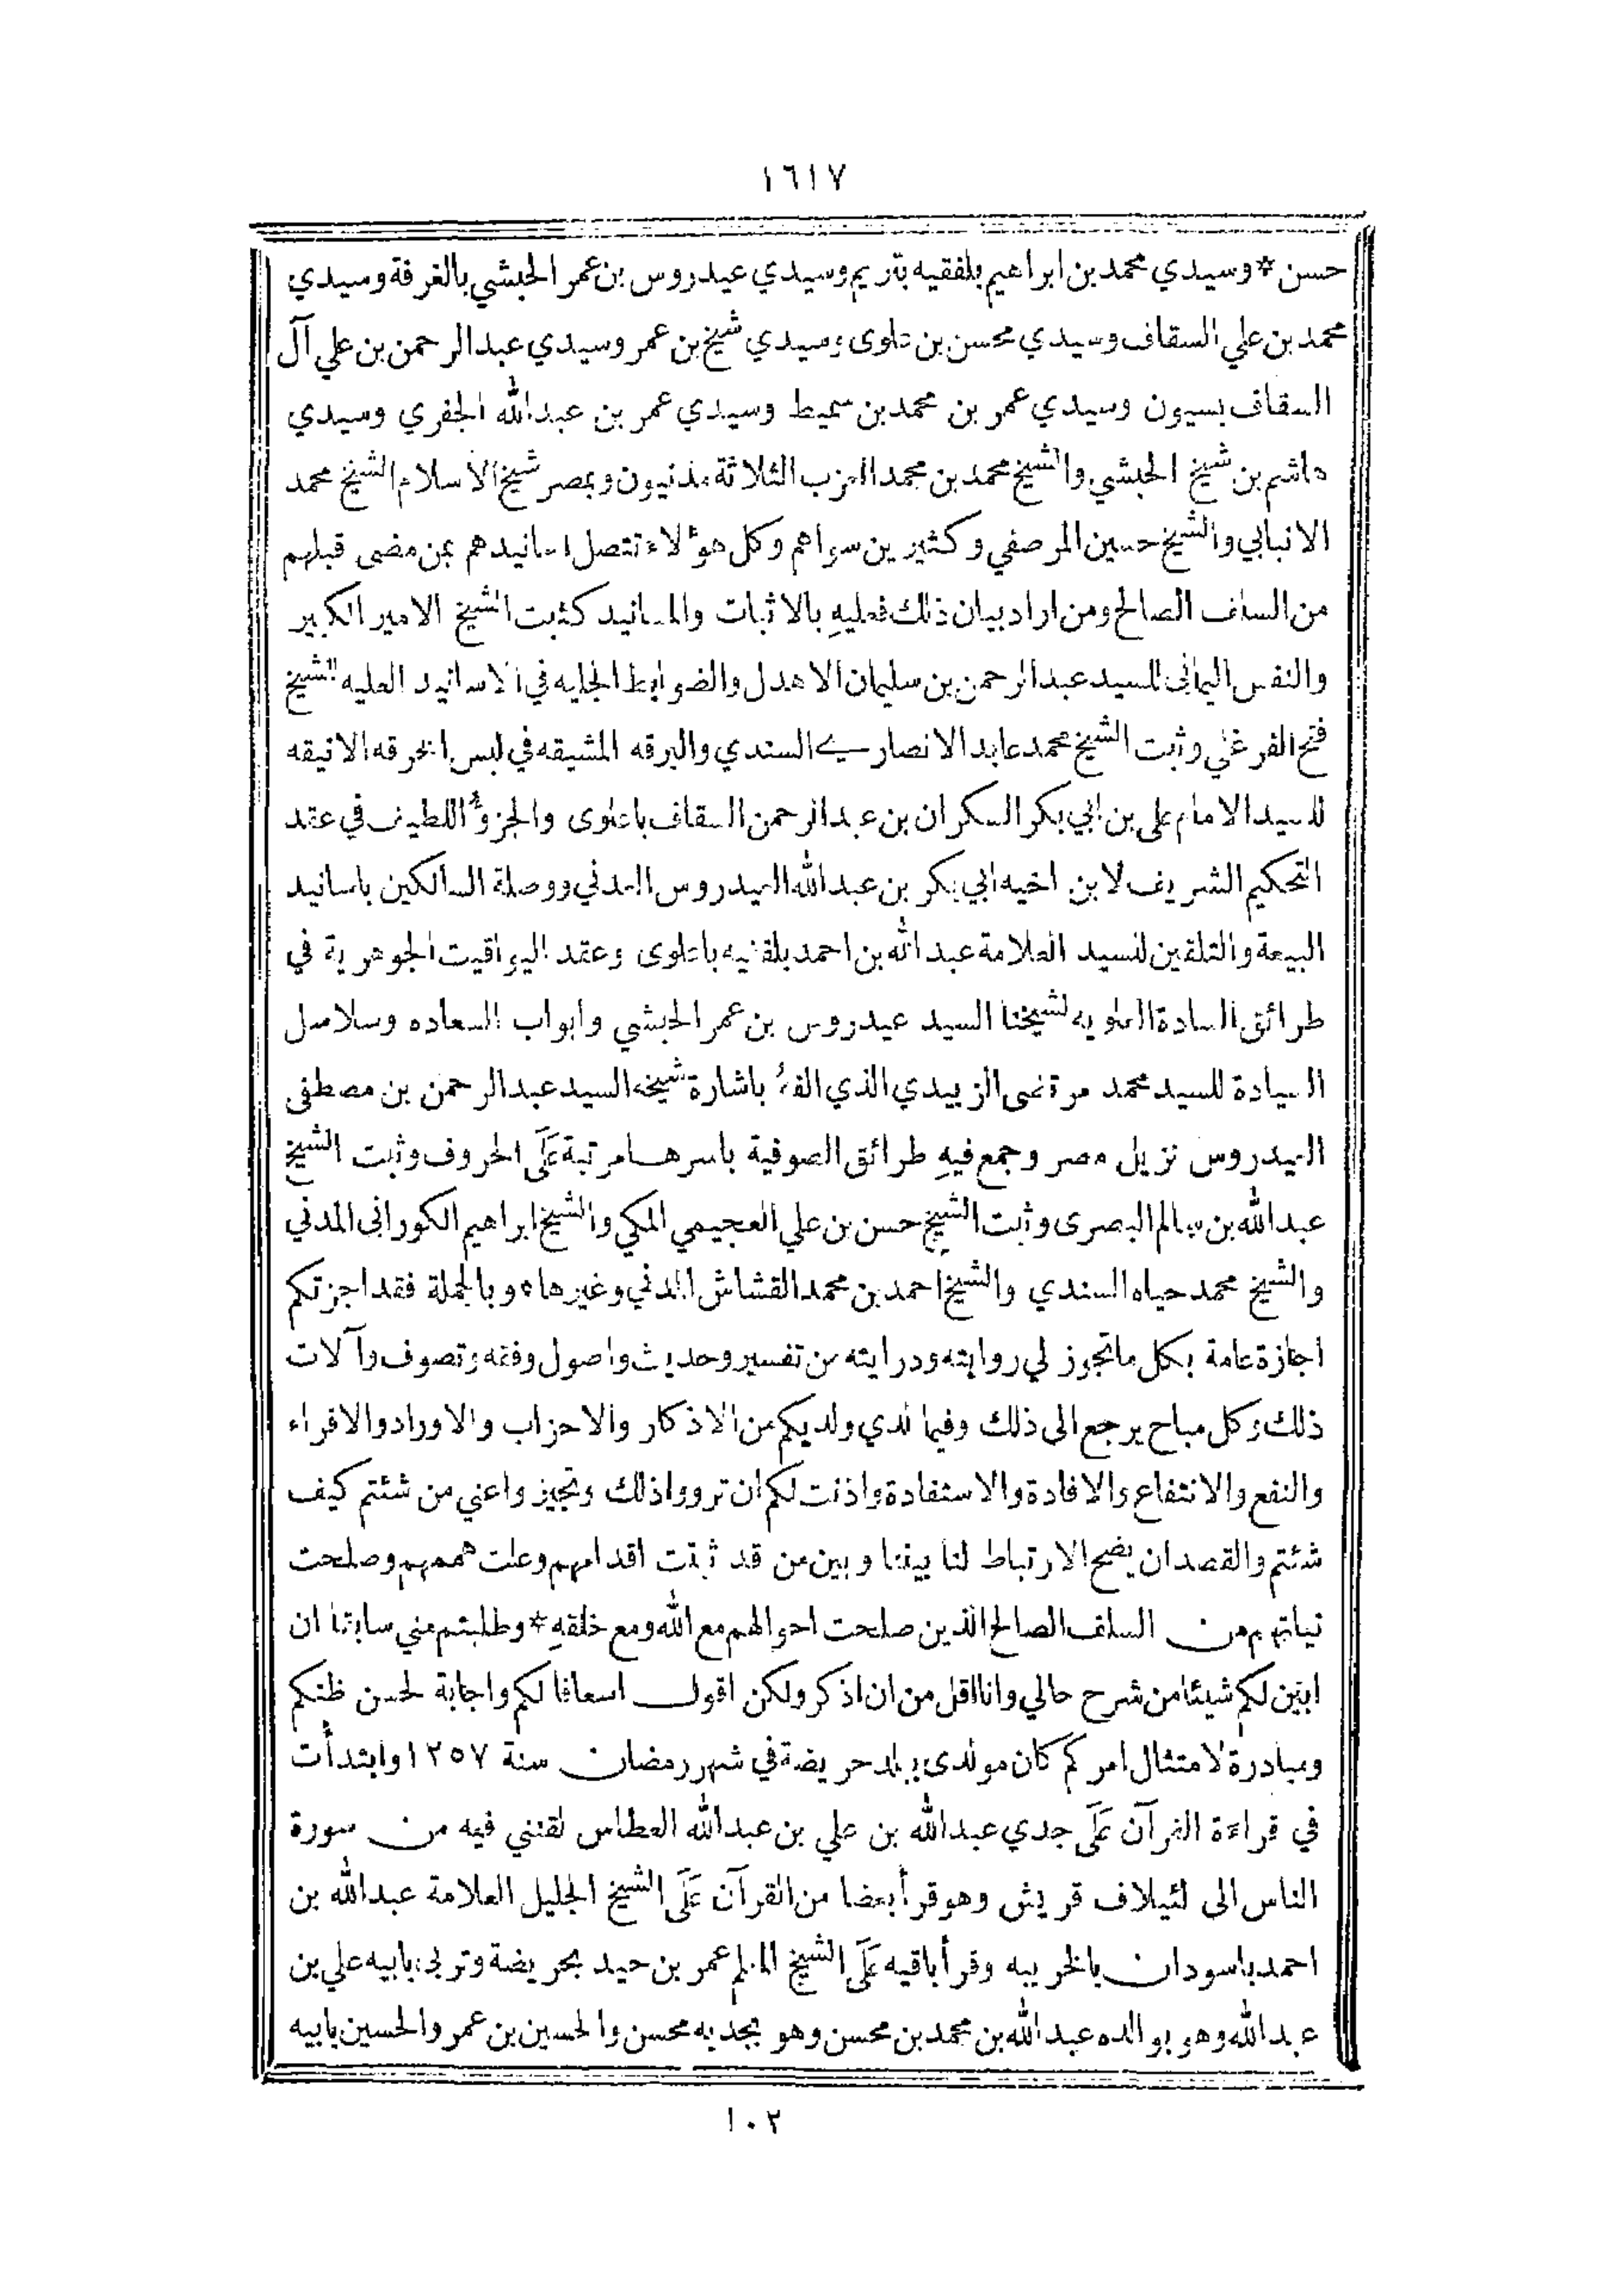 ١٦١٧
حسن * وسيدي محمد بن ابراهيم بلفقيه بتريم وسيدي عيدروس بن عمر الحبشي بالغرفة وسيدي
محمد بن علي السقاف وسيدي محسن بن علوى وسيدي شيخ بن عمر وسيدي عبد الرحمن بن علي آل
السقاف بسيون وسيدي عمر بن محمد بن سميط وسيدي عمر بن عبد الله الجفري وسيدي
هاشم بن شيخ الحبشي والشيخ محمد بن محمد العزب الثلاثة مدنيون وبمصر شيخ الاسلام الشيخ محمد
الانبابي والشيخ حسين المرصفي وكثيرين سواهم وكل هؤلاء تتصل اسانيدهم بمن مضى قبلهم
من السلف الصالح ومن اراد بيان ذلك فعليه بالاثبات والمسانيد كثبت الشيخ الامير الكبير
والنفس اليمانى للسيد عبد الرحمن بن سليمان الاهدل والضوابط الجليه في الاسانيد العليه للشيخ
فتح الفرغلي وثبت الشيخ محمد عابد الانصاري السندي والبرقه المشيقه في لبس الخرقه الانيقه
للسيد الامام على بن ابي بكر السكران بن عبد الرحمن السقاف باعلوى والجزؤ اللطيف في عقد
التحكيم الشريف لابن اخيه ابي بكر بن عبد الله العيدروس العدني ووصلة السالكين باسانيد
البيعة والتلقين للسيد العلامة عبد الله بن احمد بلفقيه باعلوى وعقد اليواقيت الجوهرية في
طرائق السادة العلويه لشيخنا السيد عيدروس بن عمر الحبشي وابواب السعاده وسلاسل
السيادة للسيد محمد مرتضى الزبيدي الذي الفهُ باشارة شيخه السيد عبد الرحمن بن مصطفى
العيدروس نزيل مصر وجمع فيهِ طرائق الصوفية باسرها مرتبة عَلَى الحروف وثبت الشيخ
عبد الله بن سالم البصرى وثبت الشيخ حسن بن علي العجيمي المكي والشيخ ابراهيم الكورانى المدني
والشيخ محمد حياه السندي والشيخ احمد بن محمد القشاش المدني وغيرها ه وبالجملة فقد اجزتكم
اجازة عامة بكل ما تجوز لي روايته ودرايته من تفسير وحديث واصول وفقه وتصوف وآلات
ذلك وكل مباح يرجع الى ذلك وفيما لدي ولديكم من الاذكار والاحزاب والاوراد والاقراء
والنفع والانتفاع والافادة والاستفادة واذنت لكم ان ترووا ذلك وتجيزوا عني من شئتم كيف
شئتم والقصد ان يضح الارتباط لنا بيننا وبين من قد ثبتت اقدامهم وعلت هممهم وصلحت
نياتهم من السلف الصالح الذين صلحت احوالهم مع الله ومع خلقهِ * وطلبتم مني سابقا ان
ابين لكم شيئا من شرح حالي وانا اقل من ان اذكر ولكن اقول اسعافا لكم واجابة لحسن ظنكم
ومبادرة لامتثال امركم كان مولدى ببلد حريضة في شهر رمضان سنة ١٢٥٧ وابتدأت
في قراءة القرآن عَلَى جدي عبد الله بن علي بن عبد الله العطاس لقنني فيه من سورة
الناس الى لئيلاف قريش وهو قرأ بعضا من القرآن عَلَى الشيخ الجليل العلامة عبد الله بن
احمد باسودان بالخريبه وقرأ باقيه عَلَى الشيخ المعلم عمر بن حيد بحريضة وتربى بابيه علي بن
عبد الله وهو بوالده عبد الله بن محمد بن محسن وهو بجديه محسن والحسين بن عمر والحسين بابيه
١٠٢